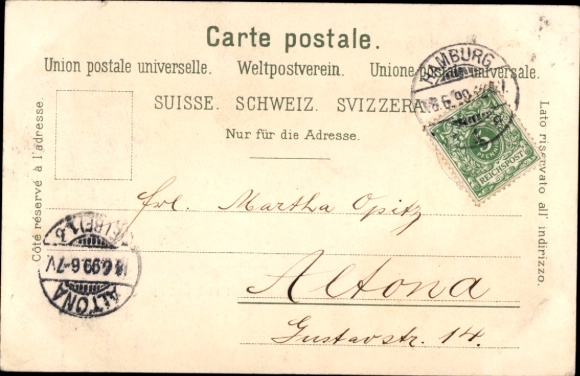 Carte postale.
Union postale universelle. Weltpostverein. Unione postale universale.
SUISSE. SCHWEIZ. SVIZZERA.
Nur für die Adresse.
Côté réservé à l'adresse.
Lato riservato all' indirizzo.
HAMBURG
REICHSPOST
Frl. Martha Opitz
Altona
Gustavstr. 14.
ALTONA
6-7V